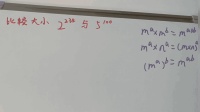 比较大小 2²³⁰ 与 5¹⁰⁰
mᵃ×mᵇ=mᵃ⁺ᵇ
mᵃ×nᵃ=(m×n)ᵃ
(mᵃ)ᵇ=mᵃᵇ